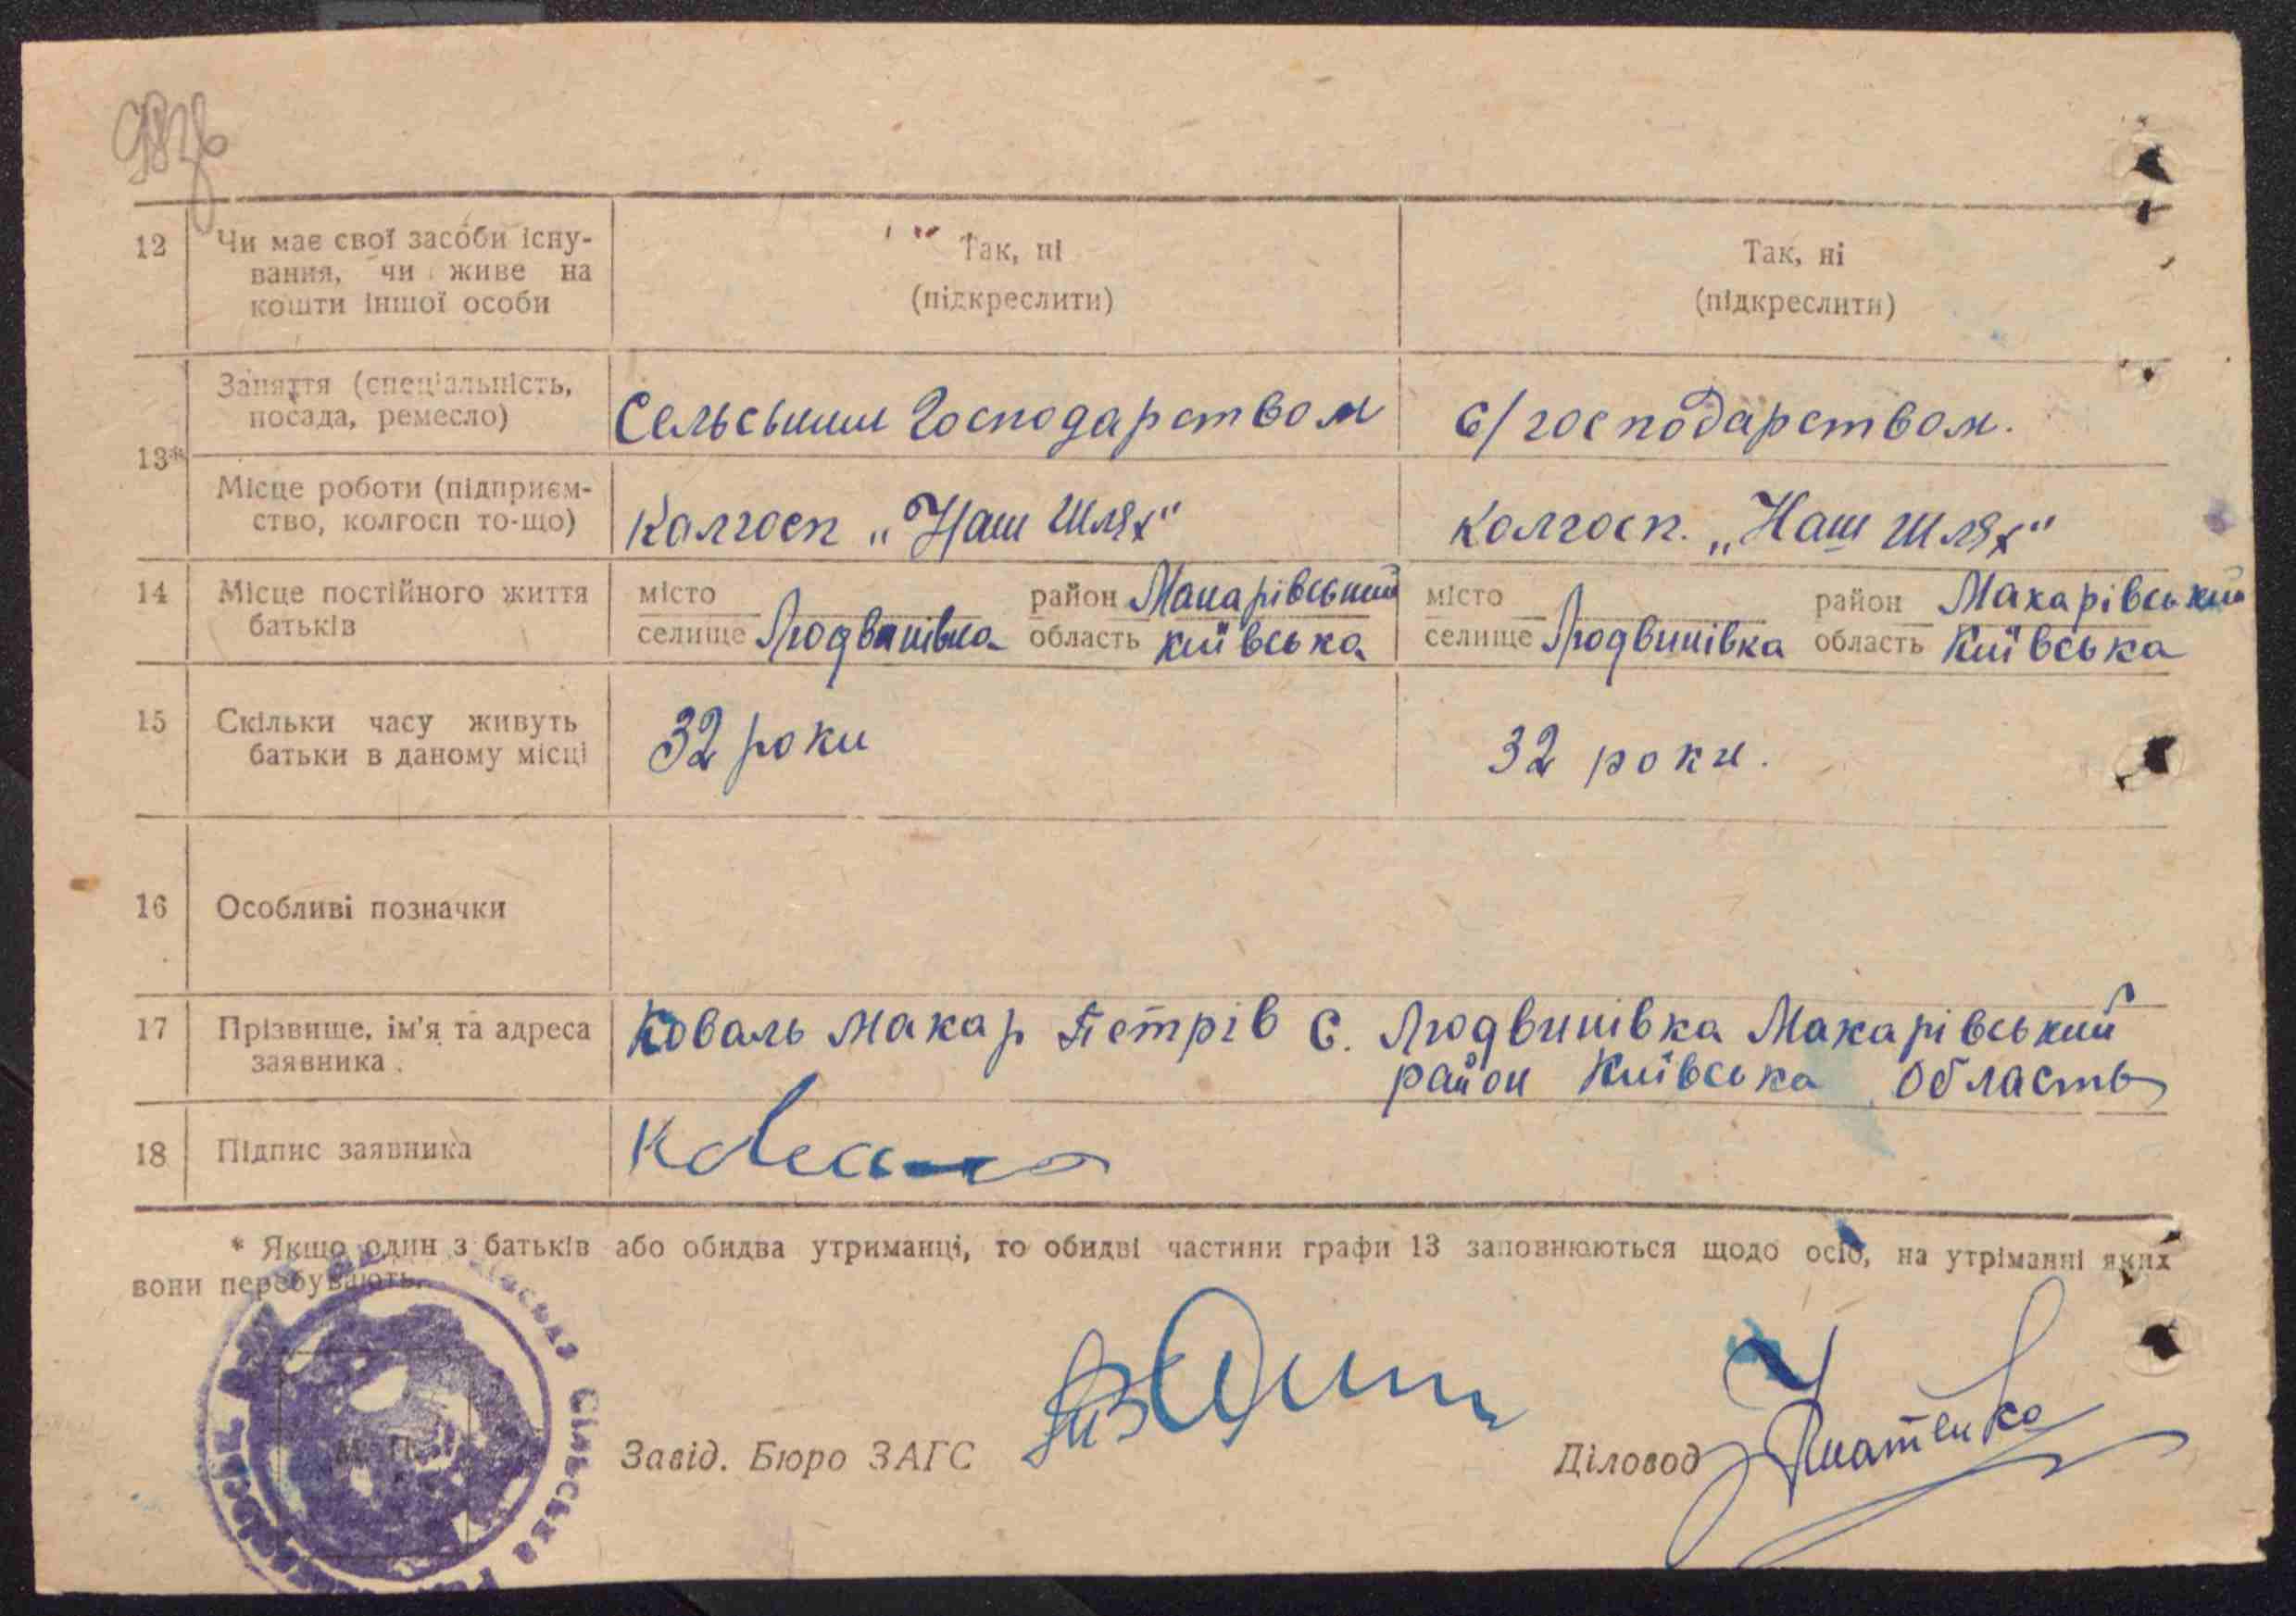 12 Чи має свої засоби існу-
вання, чи живе на
кошти іншої особи
Так, ні
(підкреслити)
Так, ні
(підкреслити)
13*
Заняття (спеціальність,
посада, ремесло)
Сельським Господарством
с/господарством.
Місце роботи (підприєм-
ство, колгосп то-що)
Колгосп „Наш Шлях"
Колгосп. „Наш Шлях"
14 Місце постійного життя
батьків
місто район Макарівський
селище Людвинівка область Київська
місто район Макарівський
селище Людвинівка область Київська
15 Скільки часу живуть
батьки в даному місці
32 роки
32 роки.
16 Особливі позначки
17 Прізвище, ім'я та адреса
заявника
Коваль Макар Петрів С. Людвинівка Макарівський
район Київська область
18 Підпис заявника
* Якщо один з батьків або обидва утриманці, то обидві частини графи 13 заповнюються щодо осіб, на утріманні яких
вони перебувають.
Сільська
М. П.
Завід. Бюро ЗАГС
Діловод Гнатенко